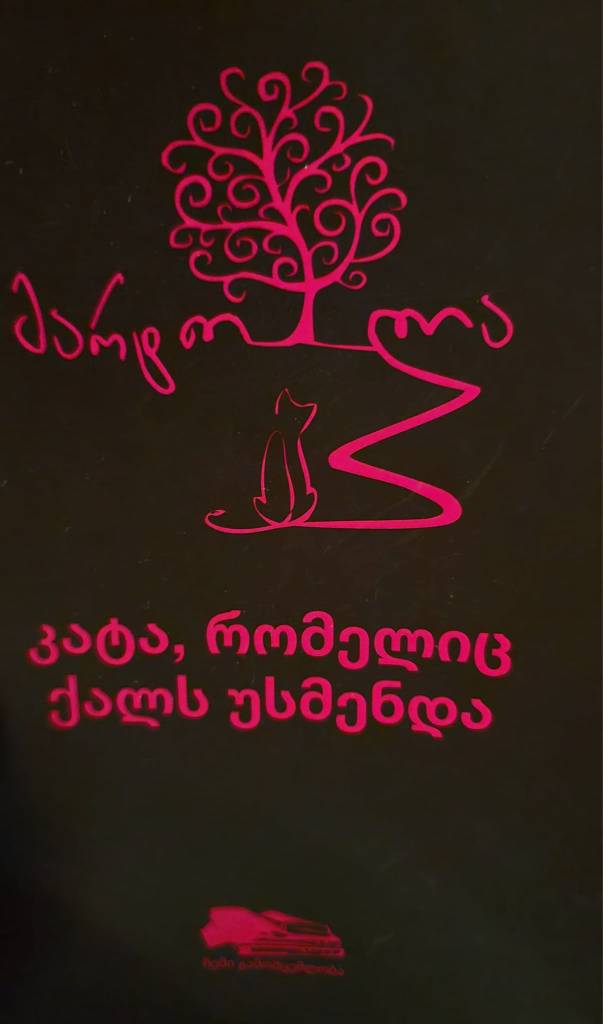 კატა, რომელიც
ქალს უსმენდა
ჩემი გამომცემლობა